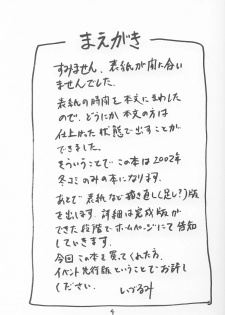 まえがき
すみません、表紙が間に合い
ませんでした。
表紙の時間を本文にまわした
ので、どうにか本文の方は
仕上がった状態で出すことが
できました。
そういうことでこの本は2002年
冬コミのみの本になります。
あとで表紙など描き直し(足し?)版
を出します。詳細は完成版が
できた段階でホームページにて告知
していきます。
今回この本を買ってくれた方、
イベント先行版ということでお許し
ください。